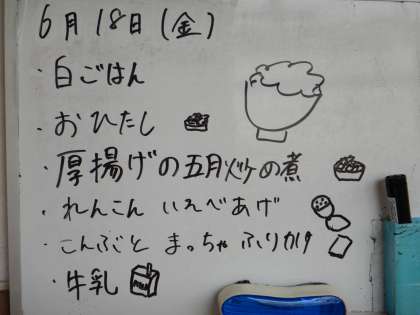 6月18日(金)
・白ごはん
・おひたし
・厚揚げの五月の煮
・れんこん いそべあげ
・こんぶと まっちゃ ふりかけ
・牛乳